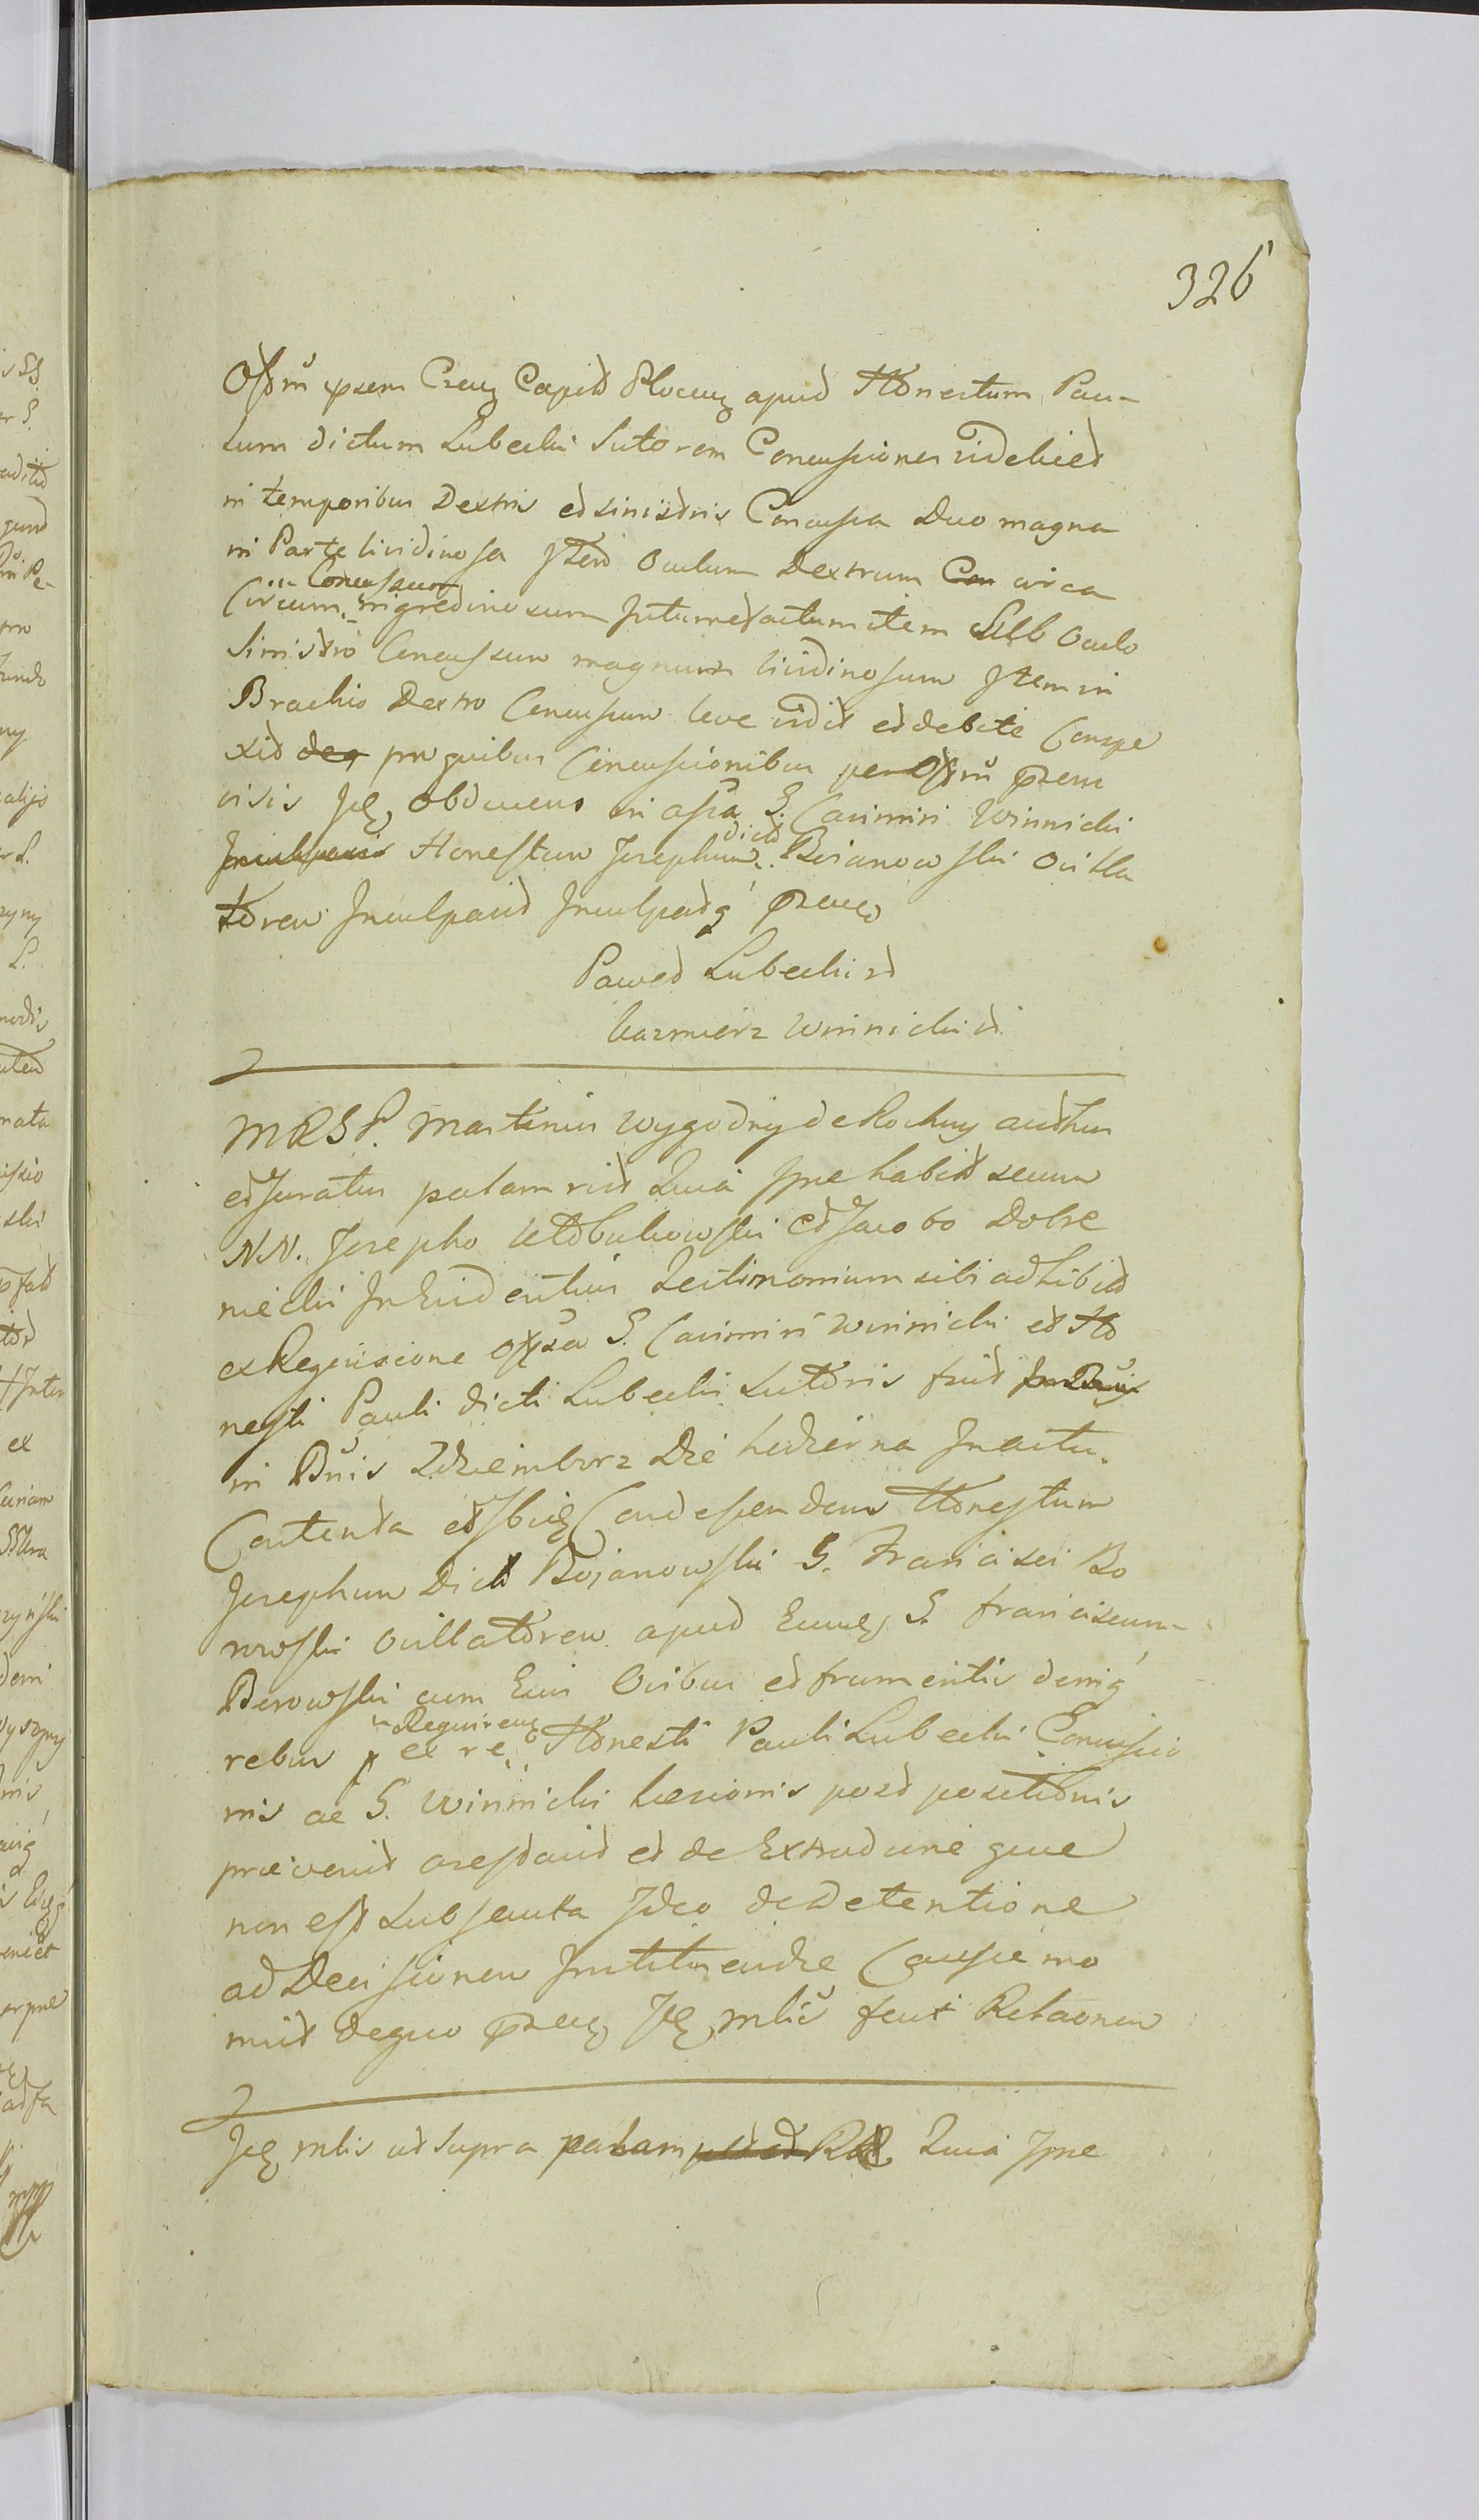 326
Offm psem Crenz Capitt Plocenz apud Honestum Pau-
lum dictum Lubecki Sutorem Concussiones videlicet
in temporibus Dextris et sinistris Concussa Duo magna
in Parte lividinosa Item Oculum Dextrum Con circa
Concussum
Circum nigredinosum Intumefactum item Sub Oculo
Sinistro Concussum magnum lividinosum Item in
Brachio Dextro Concussum leve vidit et debite Conspe
xit deq pro quibus Concussionibus per Offm psem
visis Jdz obducens in assa G. Casimiri Winnicki
dict
Honestum Josephum Boianowski Ovilla
torem Inculpavit Inculpatq psenz
Paweł Lubecki
Kazmierz Winnicki
MRSP. Martinus Wygodny de Rochny authen
et Juratus palam rett Quia Ipse habitt secum
N.N. Josepho Kłobukowski et Jacobo Dobrz
niecki In Evidentius Testimonium sibi adhibitt
ex Requisitione G. Casimiri Winnicki et Ho
nesti Pauli dicti Lubecki Sutoris fuit
in Bnis Zdziemborz Die hodierna In actu
Contenta et Ibidz Condescendens Honestum
Josephum Dict Bojanowski G. Francisci Bo
rowski Ovillatorem apud Eundz G. Franciscum
Borowski cum Eius Ovibus et frumentis deniq
Requirenz
rebus ex re Honesti Pauli Lubecki Concussio
nis ac G. Winnicki Laesionis post positionis
praevenit arestavit et de Extraditione quae
non est Subsecuta Ideo de Detentione
ad Decisionem Instituendae Causae mo
nuit de quo psenz Jdz mlis fecit Relaonem
Jdz mlis ut supra palam Quia Ipse